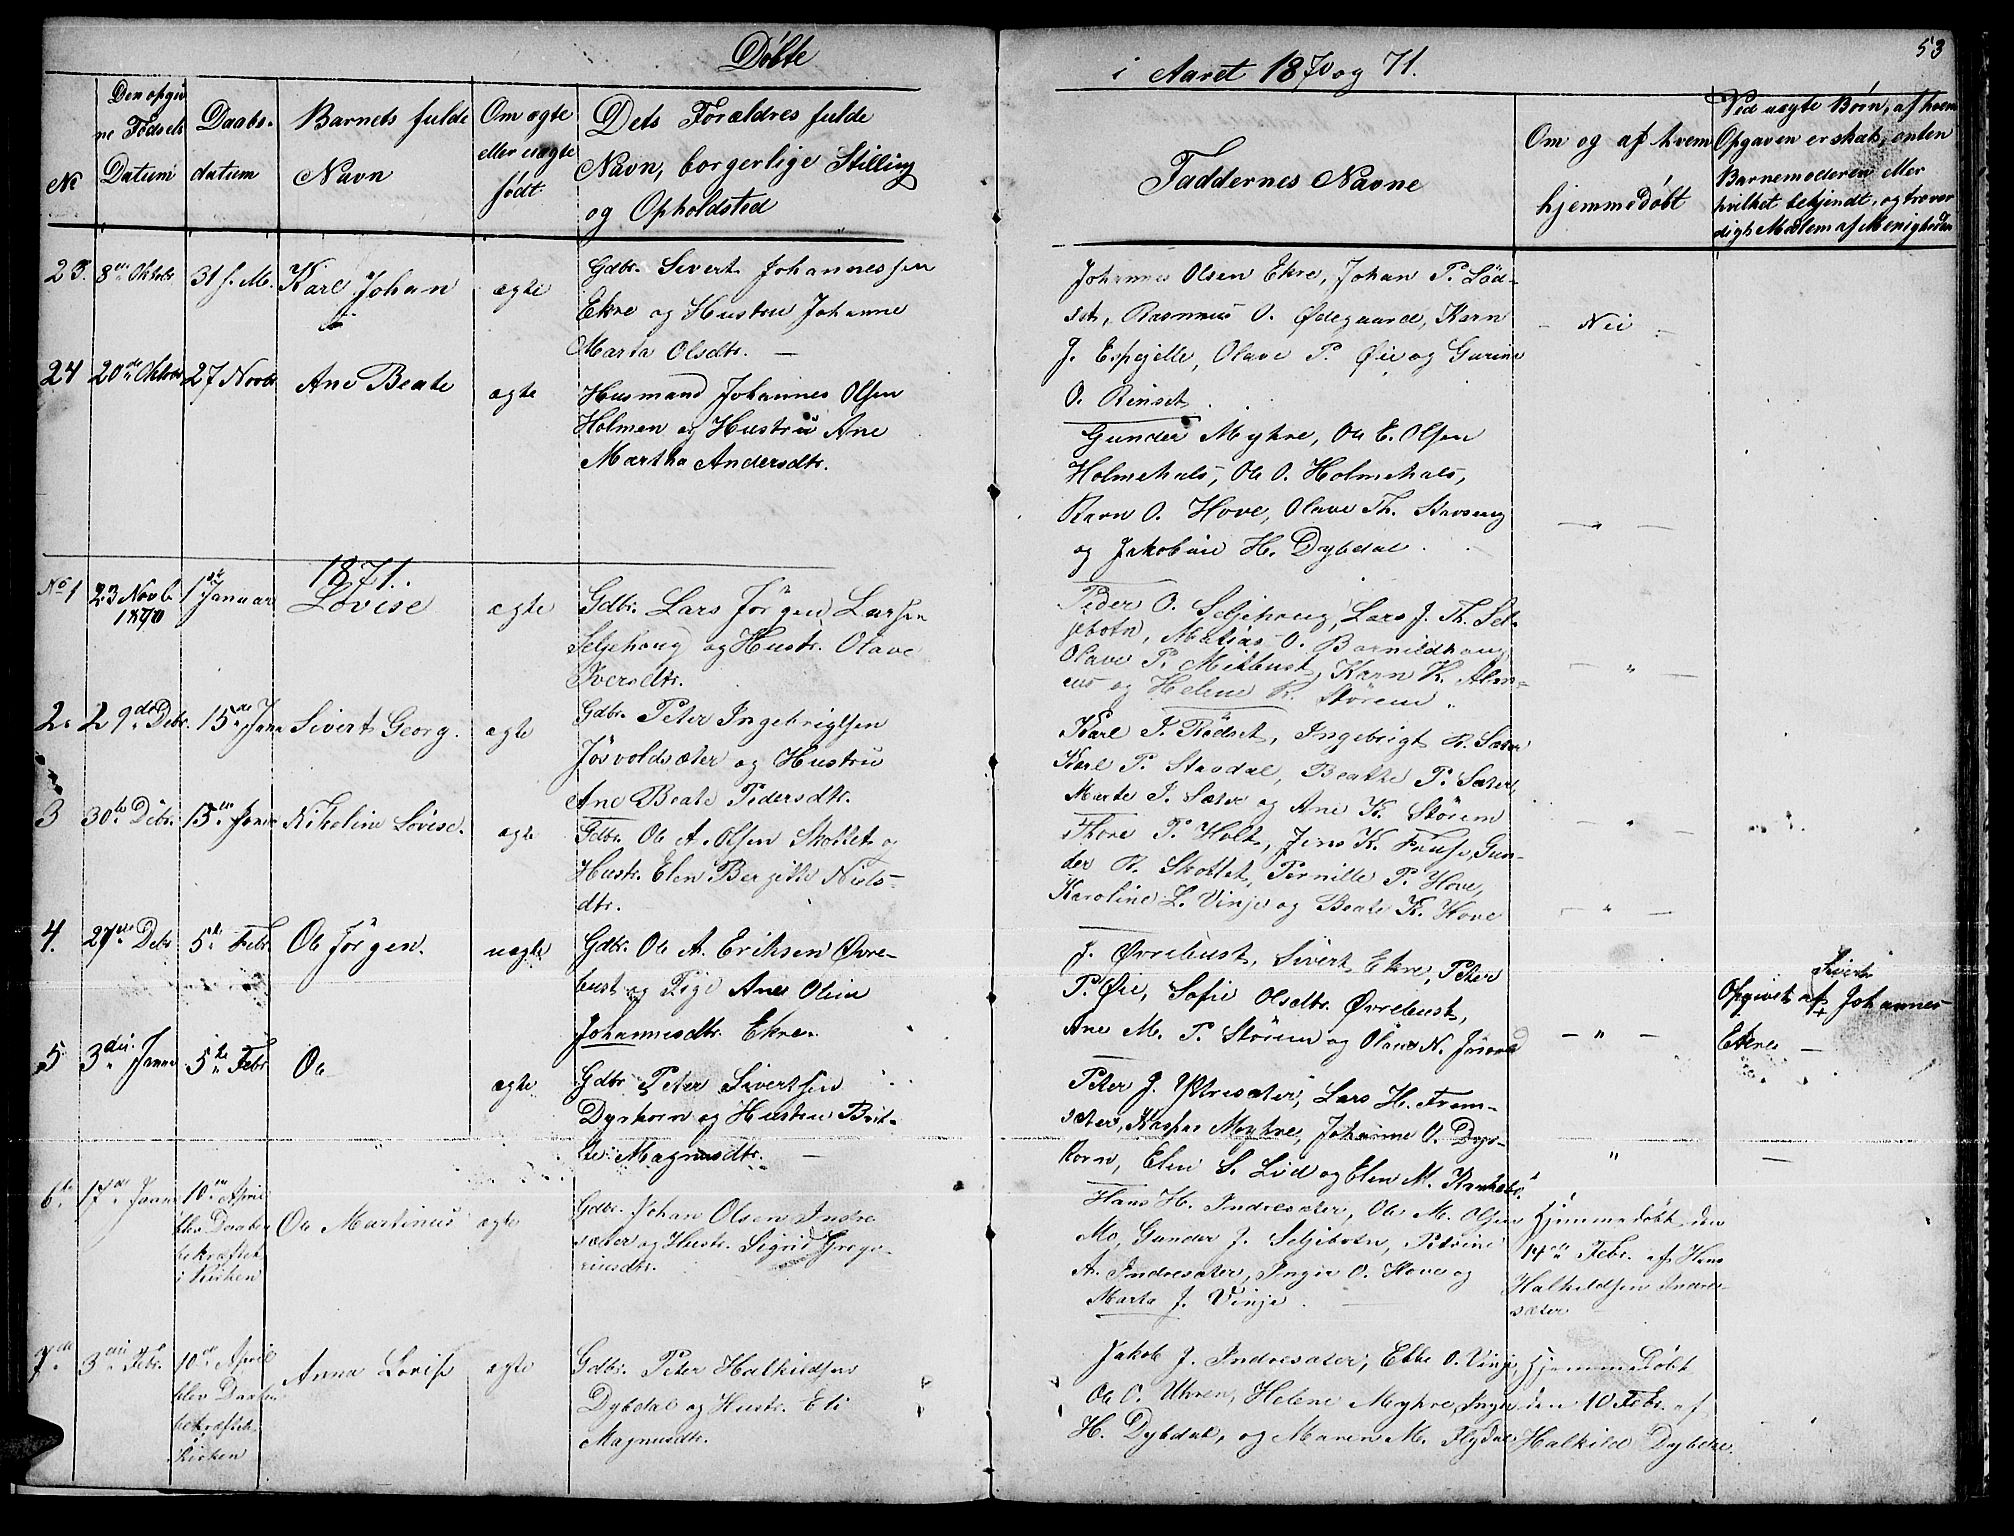 Döbte
i Aaret 1870 og 71.
53
No
Den opgiv
ne Fødsels
Datum
Daabs-
datum
Barnets fulde
Navn
Om ægte
eller uægte
født
Dets Forældres fulde
Navn, borgerlige Stilling
og Opholdsted
Faddernes Navne
Om og af hvem
hjemmedöbt
Ved uægte Børn, af hvem
Opgaven er skeet, enten
Barnemoderen eller
hvilket bekjendt, og trover
digt Medlem af Menigheden
23. 8de Oktobr 31 s. M. Karl Johan ægte
Gdbr. Sivert Johannessen
Ekre og Hustru Johanne
Marta Olsdtr. —
Johannes Olsen Ekre, Johan P. Lød-
set, Rasmus O. Ødegaard, Karn
J. Espejelle, Olave P. Øie og Gurine
O. Rinset.
- Nei -
24 20de Oktobr 27 Novbr Ane Beate ægte
Husmand Johannes Olsen
Holmen og Hustru Ane
Martha Andersdtr.
Gunder Myhre, Ole E. Olsen
Holmehals, Ole O. Holmehals,
Karn O. Hove, Olave Th. Stavseng
og Jakobine H. Dybdal.
— " —
1871.
No 1 23 Novb. 1870 1ste Januar Lovise ægte
Gdbr. Lars Jörgen Larsen
Seljehoug og Hustr. Olave
Iversdtr.
Peder O. Seljehoug, Lars J. Th. Sel-
jebotn, Matias O. Barnildhoug
Olave P. Mikbust, Karn K. Aln-
nes og Helene K. Störem.
— " —
2. 29de Debr. 15de Janu Sivert Georg. ægte
Gdbr. Peter Ingebrigtsen
Jösvoldsæter og Hustru
Ane Beate Pedersdtr.
Karl I. Rödset, Ingebrigt R. Sæter
Karl P. Stavdal, Beathe P. Sæter,
Marte I. Sæter og Ane K. Störem
— " —
3 30te Debr. 15de Janu Nikoline Lovise. ægte
Gdbr. Ole A. Olsen Skottet og
Hustr. Elen Berjitte Niels-
dtr.
Thore P. Holt, Jens K. Fause, Gun-
der R. Skottet, Pernille P. Hove,
Karoline L. Vinje og Beate K. Hove
— " —
4. 27de Debr 5te Febr. Ole Jörgen. uægte
Gdbr. Ole A. Eriksen Øvre-
bust og Pige Ane Oline
Johannesdtr. Ekre.
J. Øvrebust, Sivert Ekre, Peter
P. Øie, Sofie Olsdtr. Øvrebust,
Ane M. P. Störem og Olaus N. Jösvold
— " —
Opgivet af Sivert Johannes
Ekre —
5 3die Janu 5te Febr Ole ægte
Gdbr. Peter Sivertsen
Dyrkorn og Hustru Brit-
te Magnusdtr. —
Peter J. Yttresæter, Lars H. Frem-
sæter, Kaspar Myhre, Johanne O. Dyr-
korn, Elen S. Lied og Elen M. Kanhols
" —
6te 17de Janu 10de April
blev Daaben
bekræftet
i Kirken
Ole Martinus ægte
Gdbr. Johan Olsen Indre
sæter og Hustr. Sigrid Grego-
riusdtr.
Hans H. Indresæter, Ole M. Olsen
Mo, Gunder J. Seljebotn, Petrine
A. Indresæter, Inger O. Hove og
Marta J. Vinje.
Hjemmedöbt den
14de Febr. af Hans
Halkildsen Indre-
sæter
7de 3die Febr. 10de April
blev Daaben
bekræftet
i Kirken
Anna Lovise ægte
Gdbr. Peter Halkildsen
Dybdal og Hustr. Eli
Magnusdtr.
Jakob J. Indresæter, Ebbe O. Vinje,
Ole O. Uhren, Helene Myhre, Inge
H. Dybdal, og Maren M. Flydal
Hjemmedöbt
den 10 Febr. af
Halkild Dybdal